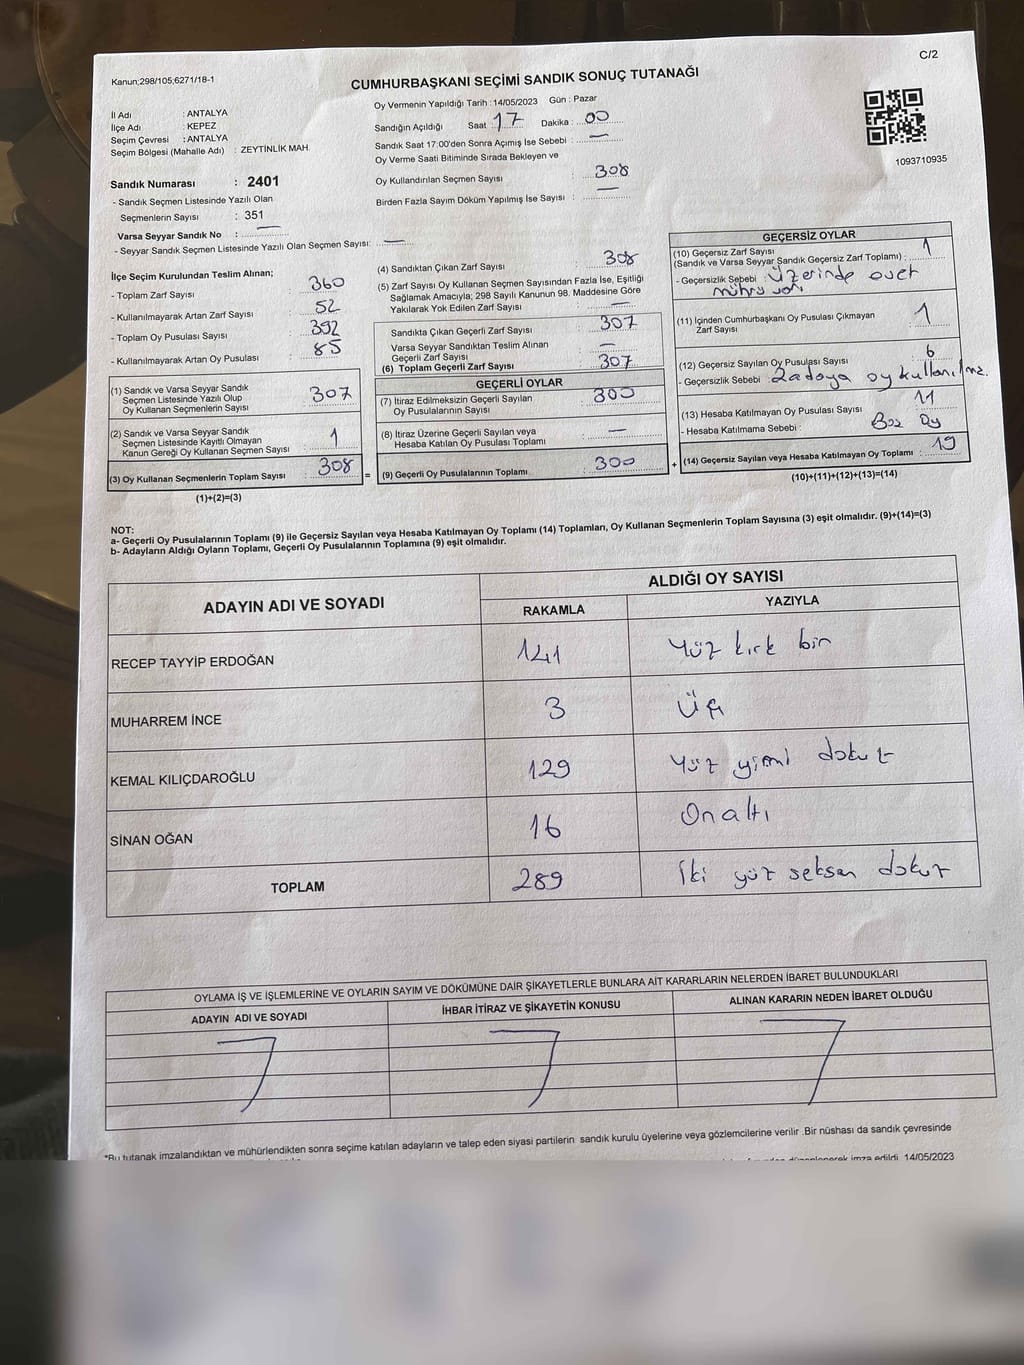 C/2
Kanun;298/105;6271/18-1
CUMHURBAŞKANI SEÇİMİ SANDIK SONUÇ TUTANAĞI
İl Adı : ANTALYA
İlçe Adı : KEPEZ
Seçim Çevresi : ANTALYA
Seçim Bölgesi (Mahalle Adı) : ZEYTİNLİK MAH.
Sandık Numarası : 2401
- Sandık Seçmen Listesinde Yazılı Olan
Seçmenlerin Sayısı : 351
Varsa Seyyar Sandık No : —
- Seyyar Sandık Seçmen Listesinde Yazılı Olan Seçmen Sayısı: —
Oy Vermenin Yapıldığı Tarih : 14/05/2023 Gün : Pazar
Sandığın Açıldığı Saat : 17 Dakika : 00
Sandık Saat 17:00'den Sonra Açımış İse Sebebi : —
Oy Verme Saati Bitiminde Sırada Bekleyen ve
Oy Kullandırılan Seçmen Sayısı : 308
Birden Fazla Sayım Döküm Yapılmış İse Sayısı : —
1093710935
İlçe Seçim Kurulundan Teslim Alınan;
- Toplam Zarf Sayısı : 360
- Kullanılmayarak Artan Zarf Sayısı : 52
- Toplam Oy Pusulası Sayısı : 392
- Kullanılmayarak Artan Oy Pusulası : 85
(1) Sandık ve Varsa Seyyar Sandık
Seçmen Listesinde Yazılı Olup
Oy Kullanan Seçmenlerin Sayısı : 307
(2) Sandık ve Varsa Seyyar Sandık
Seçmen Listesinde Kayıtlı Olmayan
Kanun Gereği Oy Kullanan Seçmen Sayısı : 1
(3) Oy Kullanan Seçmenlerin Toplam Sayısı : 308
(1)+(2)=(3)
(4) Sandıktan Çıkan Zarf Sayısı : 308
(5) Zarf Sayısı Oy Kullanan Seçmen Sayısından Fazla İse, Eşitliği
Sağlamak Amacıyla; 298 Sayılı Kanunun 98. Maddesine Göre
Yakılarak Yok Edilen Zarf Sayısı : —
Sandıkta Çıkan Geçerli Zarf Sayısı : 307
Varsa Seyyar Sandıktan Teslim Alınan
Geçerli Zarf Sayısı : —
(6) Toplam Geçerli Zarf Sayısı : 307
=
GEÇERLİ OYLAR
(7) İtiraz Edilmeksizin Geçerli Sayılan
Oy Pusulalarının Sayısı : 300
(8) İtiraz Üzerine Geçerli Sayılan veya
Hesaba Katılan Oy Pusulası Toplamı : —
(9) Geçerli Oy Pusulalarının Toplamı : 300
+
GEÇERSİZ OYLAR
(10) Geçersiz Zarf Sayısı
(Sandık ve Varsa Seyyar Sandık Geçersiz Zarf Toplamı) : 1
- Geçersizlik Sebebi : Üzerinde evet
mührü var
(11) İçinden Cumhurbaşkanı Oy Pusulası Çıkmayan
Zarf Sayısı : 1
(12) Geçersiz Sayılan Oy Pusulası Sayısı : 6
- Geçersizlik Sebebi : 2 adaya oy kullanılmz.
(13) Hesaba Katılmayan Oy Pusulası Sayısı : 11
- Hesaba Katılmama Sebebi : Boş Oy
(14) Geçersiz Sayılan veya Hesaba Katılmayan Oy Toplamı : 19
(10)+(11)+(12)+(13)=(14)
NOT:
a- Geçerli Oy Pusulalarının Toplamı (9) ile Geçersiz Sayılan veya Hesaba Katılmayan Oy Toplamı (14) Toplamları, Oy Kullanan Seçmenlerin Toplam Sayısına (3) eşit olmalıdır. (9)+(14)=(3)
b- Adayların Aldığı Oyların Toplamı, Geçerli Oy Pusulalarının Toplamına (9) eşit olmalıdır.
ADAYIN ADI VE SOYADI
ALDIĞI OY SAYISI
RAKAMLA YAZIYLA
RECEP TAYYİP ERDOĞAN 141 Yüz kırk bir
MUHARREM İNCE 3 Üç
KEMAL KILIÇDAROĞLU 129 Yüz yirmi dokuz
SİNAN OĞAN 16 On altı
TOPLAM 289 İki yüz seksen dokuz
OYLAMA İŞ VE İŞLEMLERİNE VE OYLARIN SAYIM VE DÖKÜMÜNE DAİR ŞİKAYETLERLE BUNLARA AİT KARARLARIN NELERDEN İBARET BULUNDUKLARI
ADAYIN ADI VE SOYADI İHBAR İTİRAZ VE ŞİKAYETİN KONUSU ALINAN KARARIN NEDEN İBARET OLDUĞU
*Bu tutanak imzalandıktan ve mühürlendikten sonra seçime katılan adayların ve talep eden siyasi partilerin sandık kurulu üyelerine veya gözlemcilerine verilir .Bir nüshası da sandık çevresinde
imza edildi. 14/05/2023